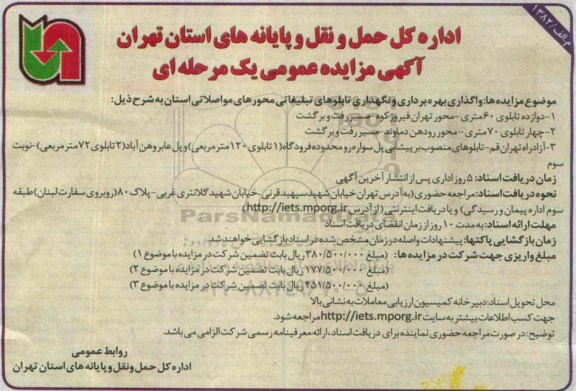 م.الف/۱۳۸۲
اداره کل حمل و نقل و پایانه های استان تهران
آگهی مزایده عمومی یک مرحله ای
موضوع مزایده ها: واگذاری بهره برداری و نگهداری تابلوهای تبلیغاتی محورهای مواصلاتی استان به شرح ذیل:
۱-دوازده تابلوی ۶۰متری -محور تهران فیروزکوه -مسیر رفت و برگشت
۲-چهار تابلوی ۷۰متری - محور رودهن دماوند-مسیر رفت و برگشت
۳-آزادراه تهران قم-تابلوهای منصوب بر پیشانی پل سواره رو محدوده فرودگاه(۱ تابلوی ۱۲۰متر مربعی) و پل عابر وهن آباد(۲ تابلوی ۷۲متر مربعی)-نوبت
سوم
زمان دریافت اسناد: ۵روز اداری پس از انتشار آخرین آگهی
نحوه دریافت اسناد: مراجعه حضوری(به آدرس تهران خیابان شهید سپهبد قرنی، خیابان شهید کلانتری غربی-پلاک۸۰(روبروی سفارت لبنان)طبقه
سوم اداره پیمان و رسیدگی) و یا دریافت اینترنتی (از آدرس http://iets.mporg.ir)
مهلت ارائه اسناد: به مدت ۱۰ روز از زمان انقضای دریافت اسناد
ParsNamadData
زمان بازگشایی پاکتها: پیشنهادات واصله در زمان مشخص شده در اسناد بازگشایی خواهند شد.
مبلغ واریزی جهت شرکت در مزایده ها: (مبلغ ۳۸۰/۵۰۰/۰۰۰ ریال بابت تضمین شرکت در مزایده با موضوع ۱)
(مبلغ ۱۷۷/۵۰۰/۰۰۰ ریال بابت تضمین شرکت در مزایده با موضوع ۲)
(مبلغ ۴۵۱/۵۰۰/۰۰۰ ریال بابت تضمین شرکت در مزایده با موضوع ۳)
محل تحویل اسناد: دبیرخانه کمیسیون ارزیابی معاملات به نشانی بالا
جهت کسب اطلاعات بیشتر به سایت http://iets.mporg.ir مراجعه شود.
توضیح: در صورت مراجعه حضوری نماینده برای دریافت اسناد، ارائه معرفینامه رسمی شرکت الزامی می باشد.
روابط عمومی
اداره کل حمل و نقل و پایانه های استان تهران